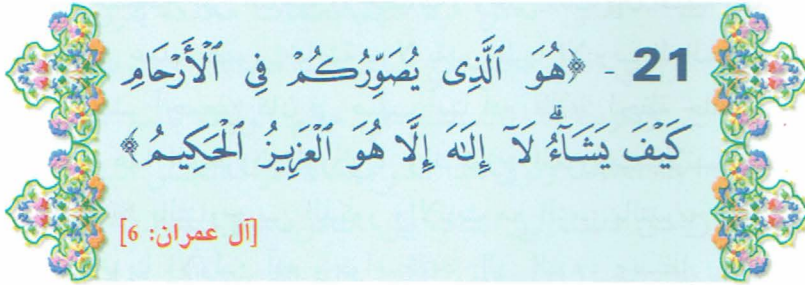 21 - ﴿هُوَ ٱلَّذِى يُصَوِّرُكُمْ فِى ٱلْأَرْحَامِ
كَيْفَ يَشَآءُۚ لَآ إِلَٰهَ إِلَّا هُوَ ٱلْعَزِيزُ ٱلْحَكِيمُ﴾
[آل عمران: 6]